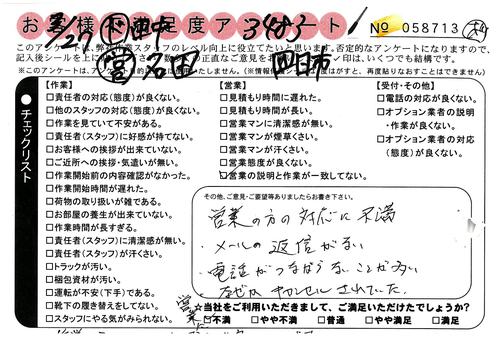 お客様満足度アンケート
3483
№ 058713
このアンケートは、弊社作業スタッフのレベル向上に役立てたいと思います。否定的なアンケートになりますので、
記入後シールを上に
の正直なご意見を
いつでも結構です。
※このアンケートは、
四日市
チェックリスト
【作業】
□責任者の対応(態度)が良くない。
□他のスタッフの対応(態度)が良くない。
□作業を見ていて不安がある。
□責任者(スタッフ)に好感が持てない。
□お客様への挨拶が出来ていない。
□ご近所への挨拶・気遣いが無い。
□作業開始前の内容確認がなかった。
□作業開始時間が遅れた。
□荷物の取り扱いが雑である。
□お部屋の養生が出来ていない。
□作業時間が長すぎる。
□責任者(スタッフ)に清潔感が無い。
□責任者(スタッフ)が汗くさい。
□トラックが汚い。
□梱包資材が汚い。
□運転が不安(下手)である。
□靴下の履き替えをしてない。
□スタッフにやる気がみられない。
【営業】
□見積もり時間に遅れた。
□見積もり時間が長い。
□営業マンに清潔感が無い。
□営業マンが煙草くさい。
□営業マンが汗くさい。
□営業態度が良くない。
□営業の説明と作業が一致してない。
【受付・その他】
□電話の対応が良くない。
□オプション業者の説明
・作業が良くない。
□オプション業者の対応
(態度)が良くない。
その他、ご意見・ご要望等ありましたらお書き下さい。
営業の方の対応に不満
・メールの返信がない
・電話がつながらないことが多い
なぜかキャンセルされていた。
☆当社をご利用いただきまして、ご満足いただけたでしょうか?
□不満 □やや不満 □普通 □やや満足 □満足